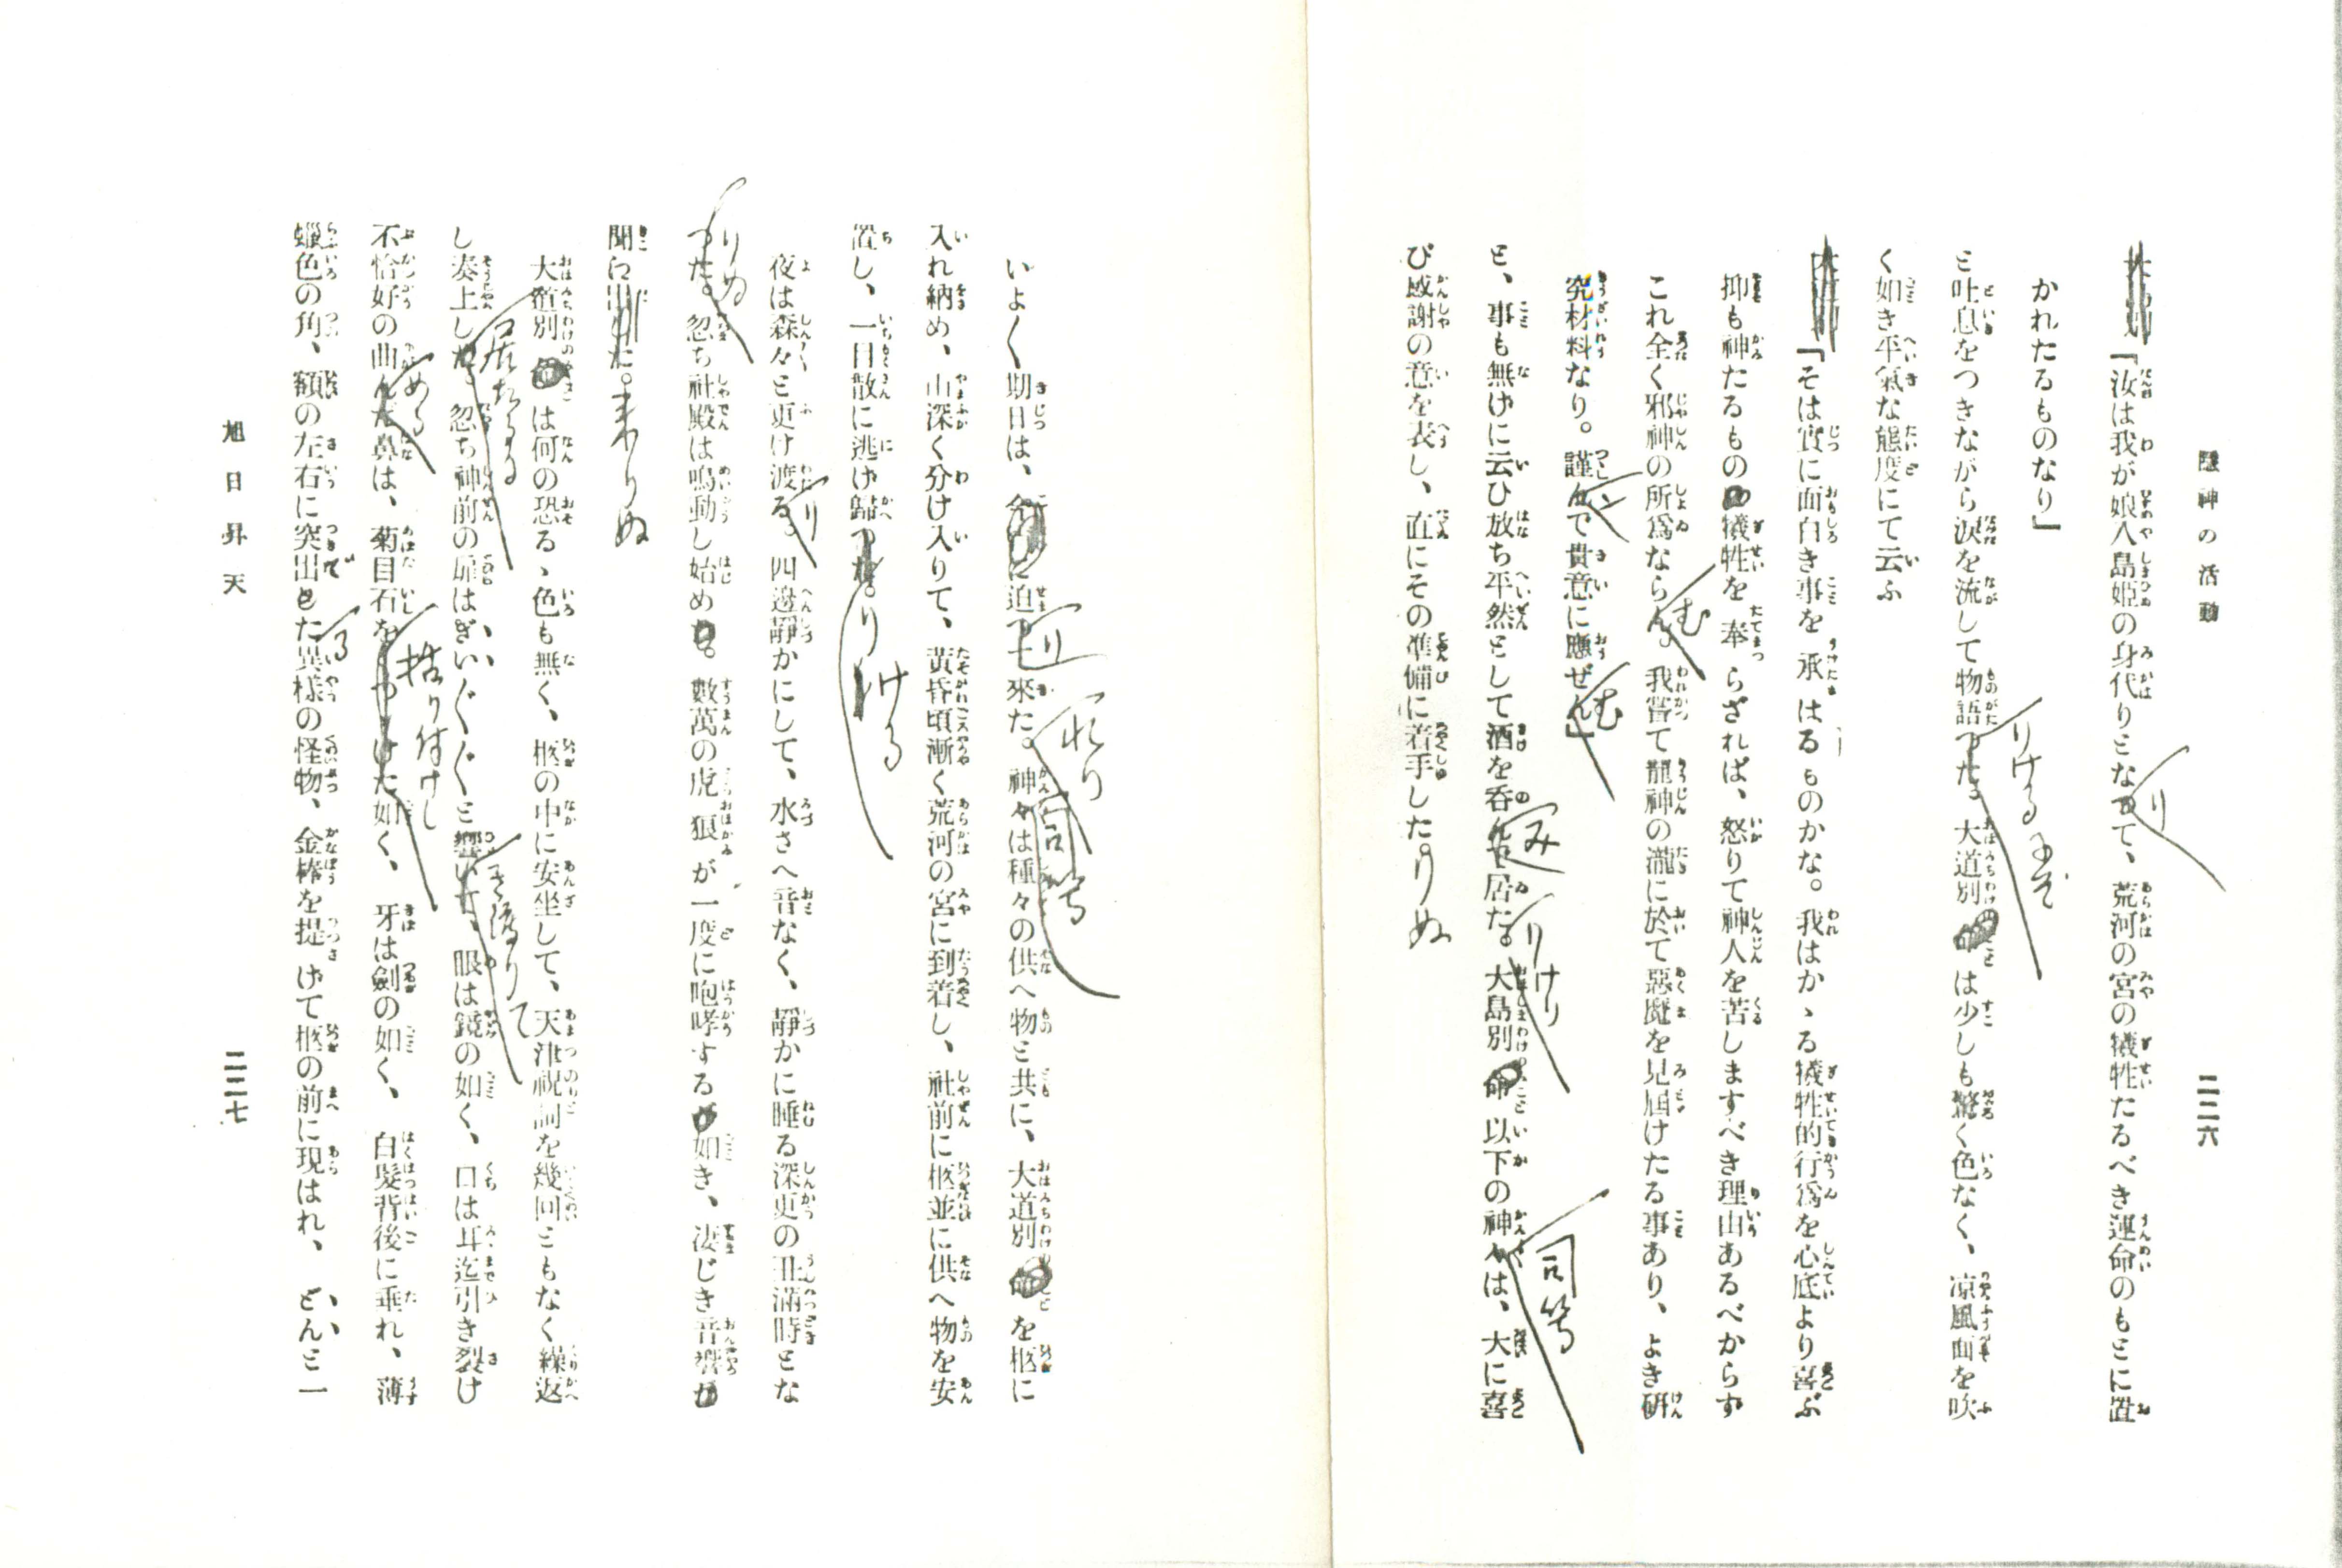 隱神の活動
二二六
『汝は我が娘八島姬の身代りとなりて、荒河の宮の犠牲たるべき運命のもとに置
り
かれたるものなり』
と吐息をつきながら淚を流して物語つた。大道別命は少しも驚く色なく、凉風面を吹
りける
く如き平氣な態度にて云ふ
『そは實に面白き事を承はるものかな。我はかゝる犠牲的行爲を心底より喜ぶ
抑も神たるもの犠牲を奉らざれば、怒りて神人を苦しますべき理由あるべからず
これ全く邪神の所爲ならん。我嘗て龍神の瀧に於て惡魔を見屆けたる事あり、よき硏
む
究材料なり。謹んで貴意に應ぜん』
ン
む
と、事も無げに云ひ放ち平然として酒を呑んで居た。大島別命以下の神々は、大に喜
み
りけり
司等
び感謝の意を表し、直にその準備に着手した。
りぬ
いよ〱期日は、に迫つて來た。神々は種々の供へ物と共に、大道別命を柩に
り
れり
司等
入れ納め、山深く分け入りて、黃昏頃漸く荒河の宮に到着し、社前に柩並に供へ物を安
置し、一目散に逃げ歸つた。
りける
夜は森々と更け渡る。四邊靜かにして、水さへ音なく、靜かに睡る深更の丑滿時とな
り
つた。忽ち社殿は鳴動し始めた。數萬の虎狼が一度に咆哮するが如き、凄じき音響が
りぬ
聞に出した。
来りぬ
大道別命は何の恐るゝ色も無く、柩の中に安坐して、天津祝詞を幾回ともなく繰返
し奏上した。忽ち神前の扉はぎいぐぐと響いて、眼は鏡の如く、口は耳迄引き裂け
居たる
き渡りて
不恰好の曲んだ鼻は、菊目石をつけた如く、牙は劍の如く、白髮背後に垂れ、薄
める
括り付けし
蠟色の角、額の左右に突出した異樣の怪物、金棒を提げて柩の前に現はれ、どんと一
る
旭日昇天
二二七